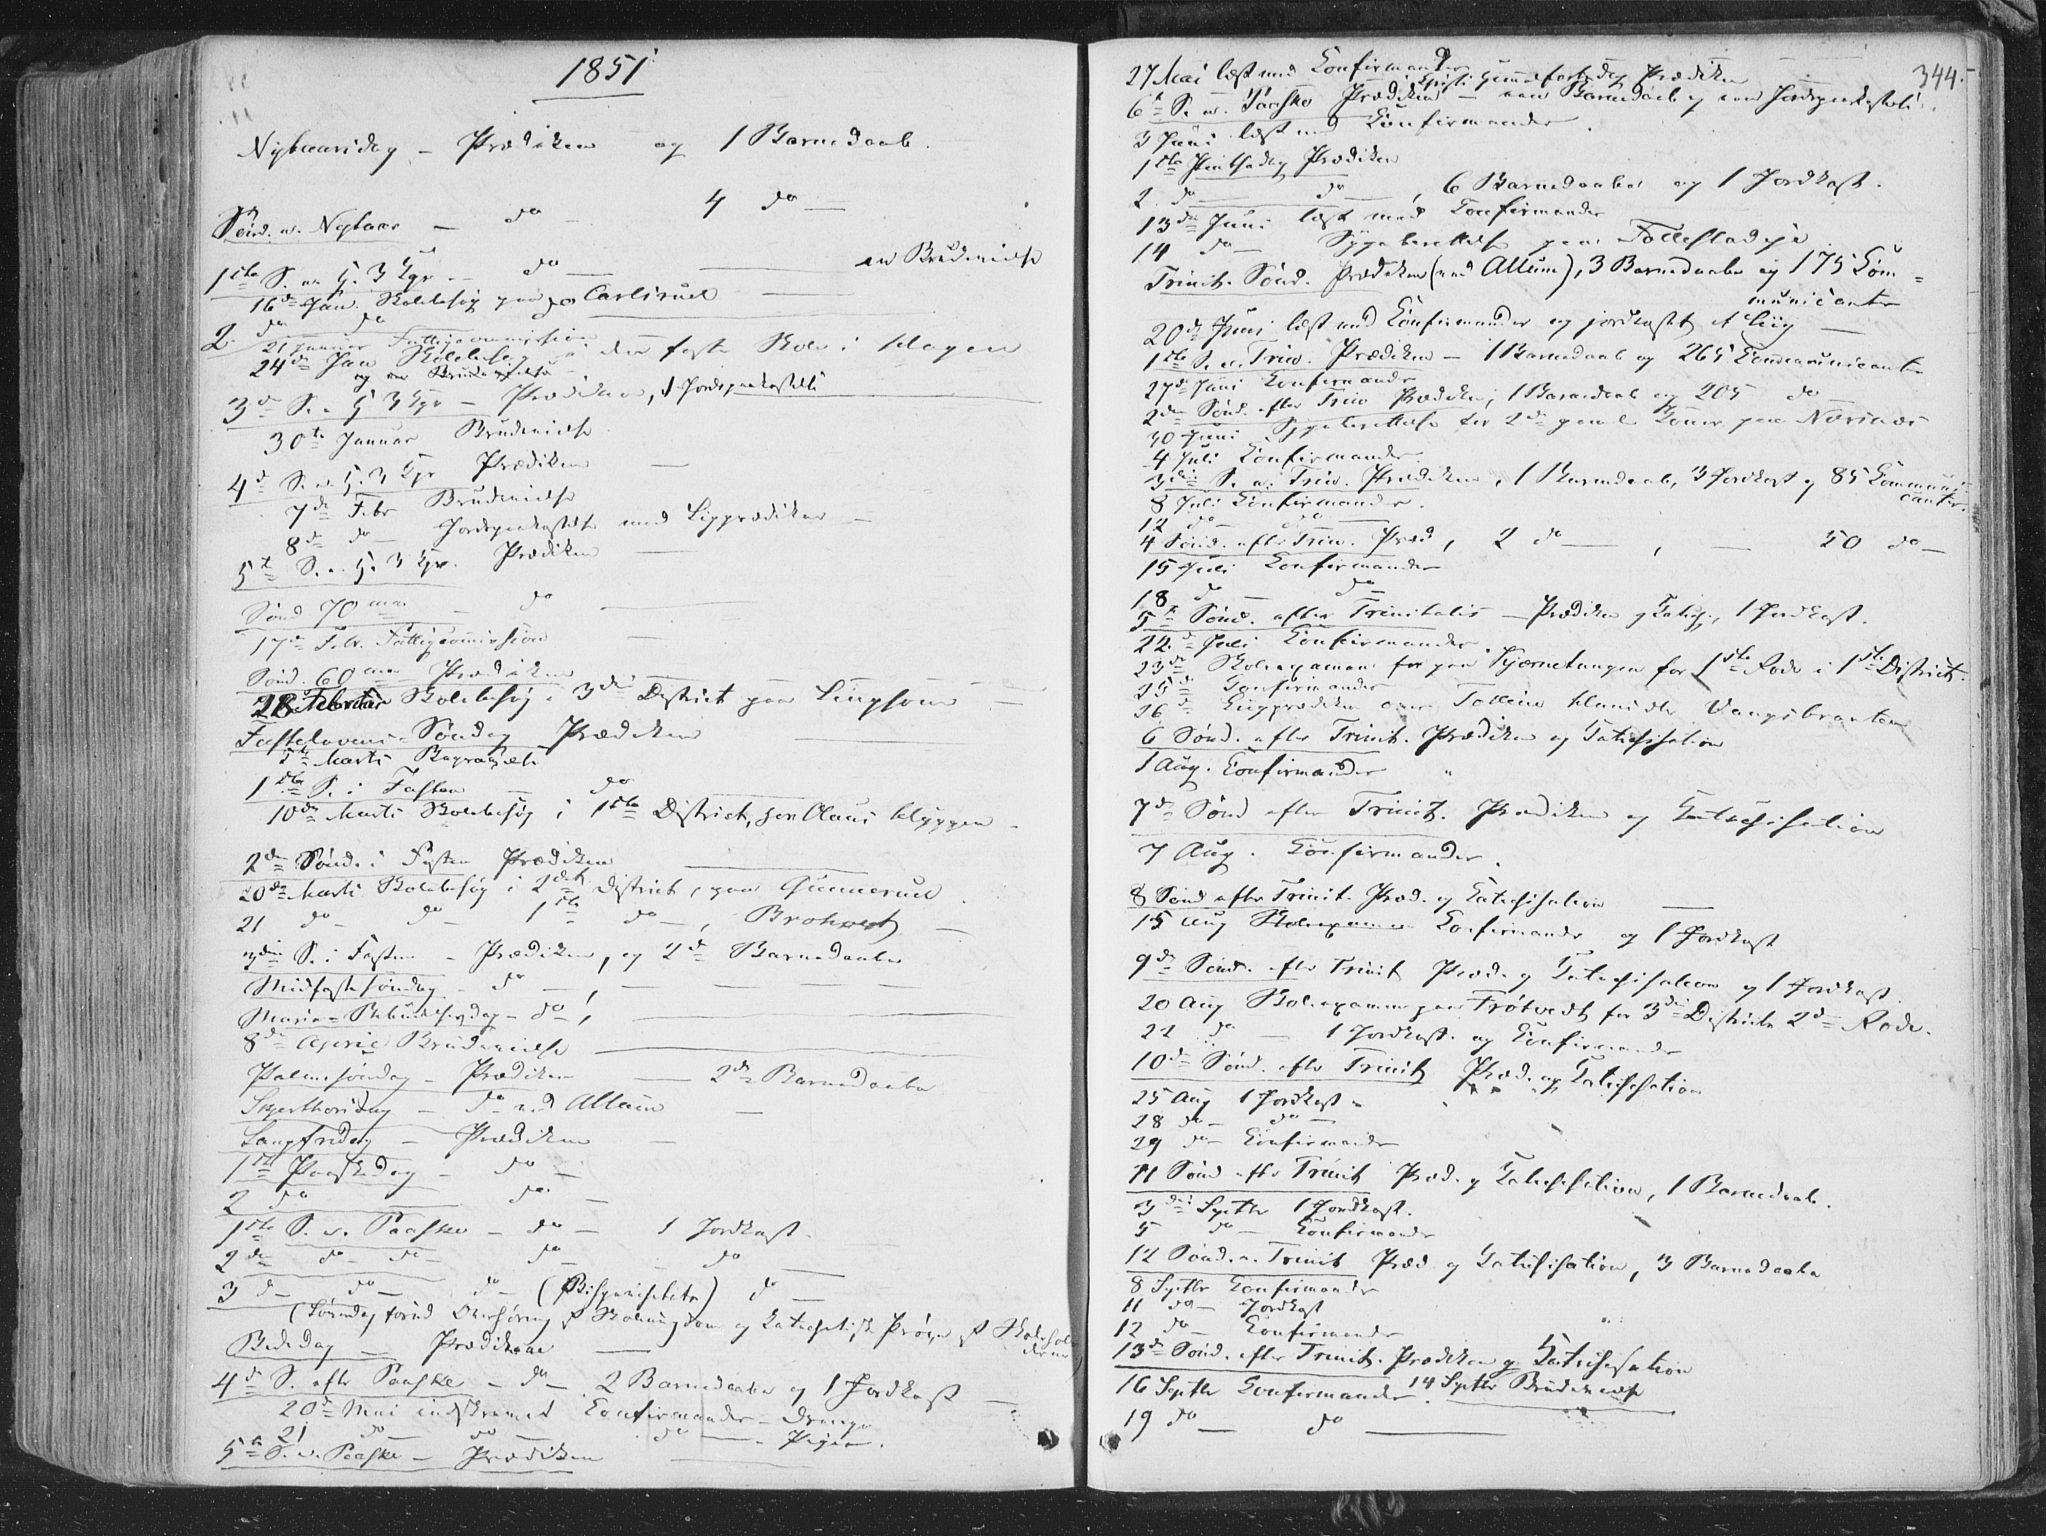 1851
Nytaarsdag – Prædiken og 1 Barnedaab.
Sønd. e. Nytaar – do – 4 do –
1ste S. e. H. 3 Kgr. – do – en Brudevielse
16de Jan. Skolebesøg paa Carlsrud
2. do do
21 Januar Fattigcommission
24de Jan Skolebesøg i den faste Skole i Hagen
og en Brudevielse
3de S. e. H. 3 Kgr – Prædiken, 1 Jordpaakastelse
30te Januar Brudevielse
4de S. e. H. 3 Kgr Prædiken –
7de Febr Brudevielse
8de do – Jordpaakastelse med Ligprædiken –
5te S. e. H. 3 Kgr. Prædiken –
Sønd 70ma – do –
17de Febr. Fattigcommission –
Sønd. 60ma Prædiken
28 Februar Skolebesøg i 3die District paa
Fastelavens Søndag Prædiken
5te Marts
1ste S. i Fasten – do
10de Marts Skolebesøg i 1ste District, hos Claus
2den Sønd. i Fasten Prædiken
20de Marts Skolebesøg i 2det District, paa Gunnerud
21 do – do – 1ste do –,
3die S. i Fasten – Prædiken, og 2de Barnedaabe
Midfastesøndag – do –,
Mariæ Bebudelsesdag – do,
8de April Brudevielse
Palmesøndag – Prædiken – 2de Barnedaabe
Skjærthorsdag – do med Altum –
Langfredag – Prædiken –
1ste Paaskedag – do –
2 do do –
1ste S. e. Paaske – do – 1 Jordkast.
2den do do do – do
3de do do (Bispevisitats) do –
Bededag – Prædiken –
4de S. efter Paaske – do – 2 Barnedaabe og 1 Jordkast –
20de Mai indskrevet Confirmander – Drenge
21 do – do – do – Piger.
5te S. e. Paaske – Prædiken
344.
27 Mai læst med Confirmander
Christi Himmelfartsdag Prædiken
6te S. e. Paaske Prædiken – een Barnedaab og een Jordpaakastelse.
3 Juni læst med Confirmander.
1ste Pintsedag Prædiken
2. do do –, 6 Barnedaabe og 1 Jordkast.
13de Juni læst med Confirmander
14 do – Sygeberettelse paa
Trinit. Sønd. Prædiken (med Altum), 3 Barnedaabe og 175 Com=
municanter
20de Juni læst med Confirmander og jordkastet et Liig –
1ste S. e. Trin. Prædiken – 1 Barnedaab og 265 Communicanter
27de Juni Confirmander
2den Sønd. efter Trin Prædiken, 1 Barnedaab og 205 do –
30 Juni Sygeberettelse for 2de gamle Koner paa
4 Juli Confirmander
3die S. e. Trin. Prædiken, 1 Barnedaab, 3 Jordkast og 85 Communi=
canter.
8 Juli Confirmander.
12 do – do –
4 Sønd. efter Trin. Præd, 2 do –, – 50 do –
15 Juli Confirmander
18 do – do
5te Sønd. efter Trinitatis – Prædiken og Catech., 1 Jordkast.
22de Juli Confirmander
23de Skoleexamen for paa Kjærnetangen for 1ste Rode i 1ste District.
25de Confirmander
26de Liigprædiken over
6 Sønd. efter Trinit. Prædiken og Catechisation
1 Aug. Confirmander
7de Sønd efter Trinit. Prædiken og Catechisation
7 Aug. Confirmander.
8 Sønd efter Trinit. Præd. og Catechisation –
15 Aug Confirmander og 1 Jordkast
9de Sønd. efter Trinit Præd. og Catechisation og 1 Jordkast.
20 Aug Skoleexamen paa Frøtvedt for 3die Districts 2de Rode.
22 do – 1 Jordkast. og Confirmander
10de Sønd. efter Trinit Præd. og Catechisation
25 Aug 1 Jordkast –
28 do – do –
29 do – Confirmander
11 Sønd efter Trinit Præd. og Catechisation, 1 Barnedaab.
3die Septbr 1 Jordkast.
5 do – Confirmander
12 Sønd. e. Trinit Præd og Catechisation, 3 Barnedaabe
8 Septbr Confirmander
11 do – Jordkast
12 do – Confirmander
13de Sønd. efter Trinit. Prædiken og Catechisation
16 Septbr Confirmander. 14 Septbr Brudevielse
19 do – do